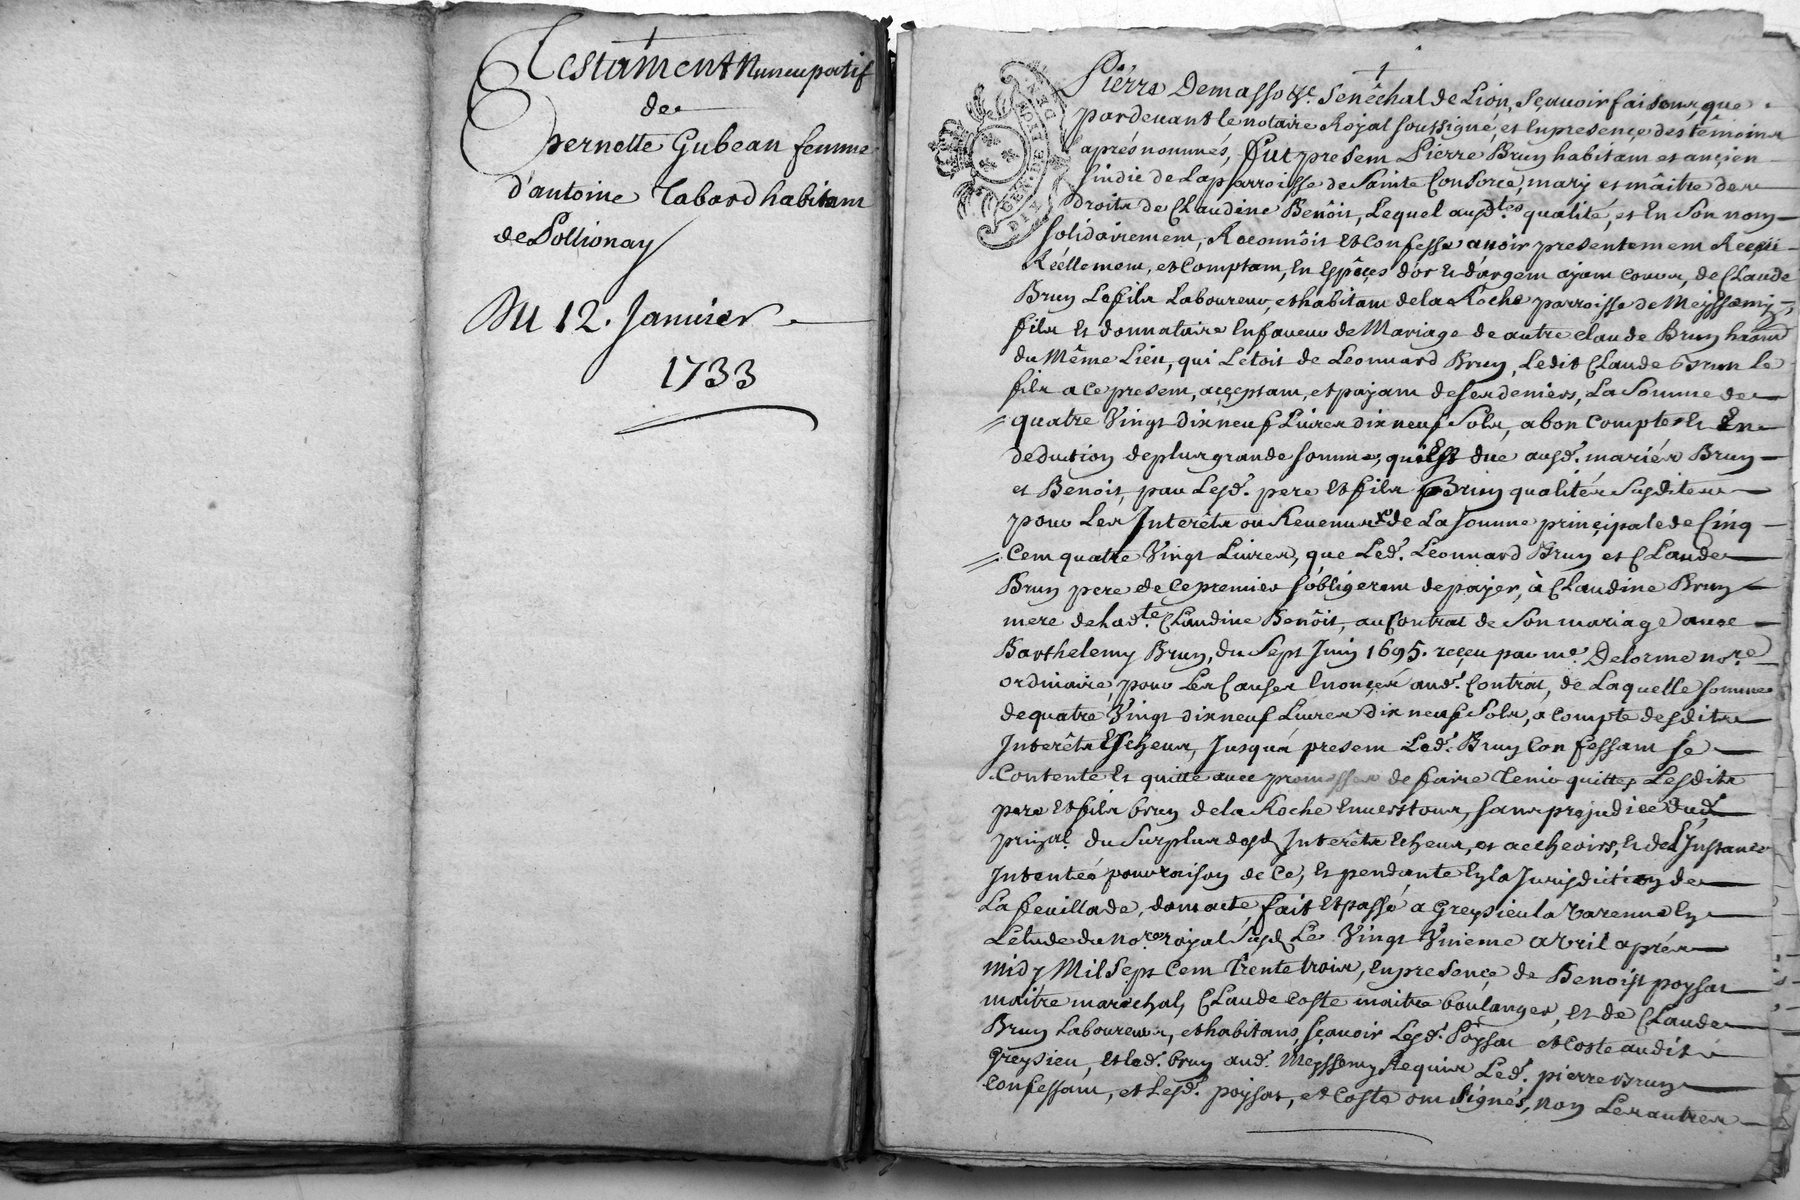 Testament Nuncupatif
de
pernette Gubean femme
d'antoine Tabard habitant
de Pollionay
Du 12. Januier
1733
GEN. DE LYON
Pierre Demasso &c. Senêchal de Lion, Sçauoir faisons, que
pardeuant le notaire Royal soussigné, et En presençe des têmoins
aprés nommés, fut present Pierre Brun habitant et ançien
sindic de La parroisse de Sainte Consorce, mary et mâitre des
droits de CLaudine Benôit, Lequel ausd.tes qualité, et En Son nom
solidairement, Reconnôit Et Confesse auoir presentement Reçeu
Réellement, et Comptant, En Espêçes d'or Et d'argent ayant cours, de CLaude
Brun Le fils Laboureur, et habitant de la Roche parroisse de Meyssemy,
fils Et donnataire En faueur de Mariage de autre claude Brun
du Même Lieu, qui L'etoit de Leonnard Brun, Ledit CLaude Brun Le
fils a ce present, acçeptant, et payant de ses deniers, La Somme de
quatre Vingt dix neuf Liures dix neuf Sols, a bon Compte Et En
deduction de plus grande somme, qui Est due ausd. mariés Brun
et Benoit, par Lesd. pere Et fils Brun qualités Susdites
pour Les Interêts ou Reuenus de La somme prinçipale de Cinq
Cent quatre Vingt Liures, que Led. Leonnard Brun et CLaude
Brun pere de Ce premier s'obligerent de payer, à CLaudine Brun
mere de lad.te CLaudine Benôit, au Contrat de Son mariage auec
Barthelemy Brun, du Sept Juin 1695. reçeu par me. Delorme no.re
ordinaire, pour Les Causes Enonçés aud. Contrat, de Laquelle somme
de quatre Vingt dix neuf Liures dix neuf Sols, a compte desdits
Interêts Escheus, Jusqu'a present Led. Brun Confessant se
Contente Et quitte auec promesses de faire Tenir quittes Lesdits
pere Et fils brun de la Roche Enuers tous, sans prejudice dud.
prinpal. du Surplus desd. Interêts Echeus, et a echeoirs, Et de L'Instance
Intentéé pour raison de Ce, Et pendante En la Jurisdiction de
La feuillade, dont acte, fait Et passé a Greysieu la Varenne En
L'etude du no.re royal Susd. Le Vingt Vnieme avril aprés
midy Mil Sept Cent Trente trois, En presençe de Benoist poysat
maitre marêchal, CLaude Coste maitre boulanger, Et de CLaude
Brun Laboureur, et habitans, sçauoir Lesd. Poysat et Coste audit
Greysieu, Et Led. brun aud. Meyssemy Requis Led. pierre Brun
Confessant, et Lesd. poysat, et Coste ont Signés, non Les autres